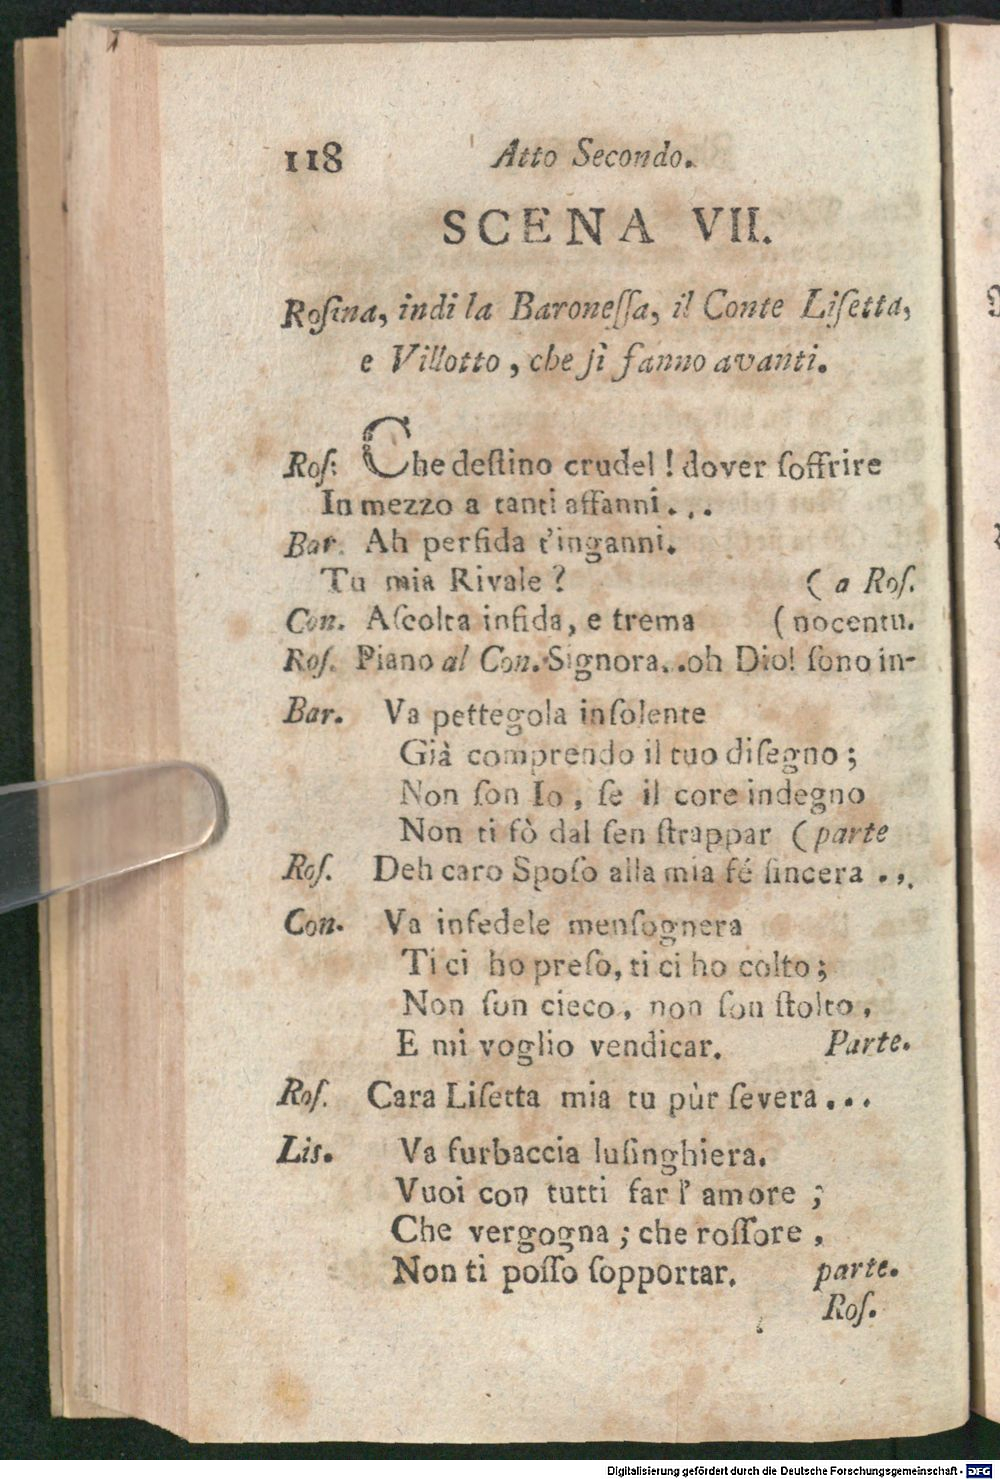 118 Atto Secondo.
SCENA VII.
Roſina, indi la Baroneſſa, il Conte Liſetta,
e Villotto, che ſi fanno avanti.
Roſ: Che deſtino crudel! dover ſoffrire
In mezzo a tanti affanni...
Bar. Ah perfida t'inganni.
Tu mia Rivale? (a Roſ.
Con. Aſcolta infida, e trema (nocentu.
Roſ. Piano al Con. Signora..oh Dio! ſono in-
Bar. Va pettegola inſolente
Già comprendo il tuo diſegno;
Non ſon Io, ſe il core indegno
Non ti fò dal ſen ſtrappar (parte
Roſ. Deh caro Spoſo alla mia fé ſincera ...
Con. Va infedele menſognera
Ti ci ho preſo, ti ci ho colto;
Non ſon cieco, non ſon ſtolto,
E mi voglio vendicar. Parte.
Roſ. Cara Liſetta mia tu pùr ſevera...
Lis. Va furbaccia luſinghiera.
Vuoi con tutti far l'amore;
Che vergogna; che roſſore,
Non ti poſſo ſopportar. parte.
Roſ.
Digitalisierung gefördert durch die Deutsche Forschungsgemeinschaft - DFG